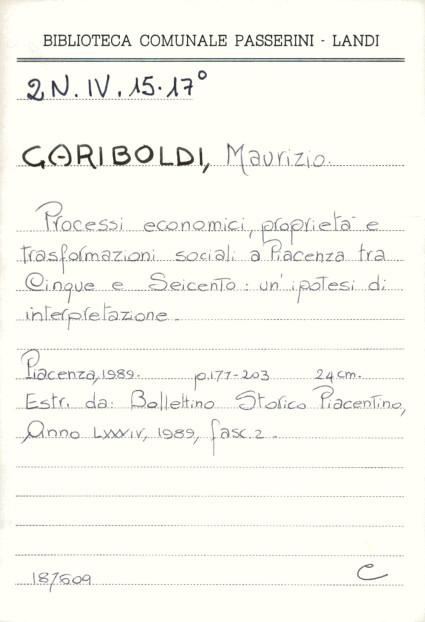 BIBLIOTECA COMUNALE PASSERINI - LANDI
2N.IV.15.17°
GARIBOLDI, Maurizio.
Processi economici, proprietà e
trasformazioni sociali a Piacenza tra
Cinque e Seicento: un'ipotesi di
interpretazione.
Piacenza, 1989. p.177-203 24 cm.
Estr. da: Bollettino Storico Piacentino,
Anno LXXXIV, 1989, fasc.2.
187609 C